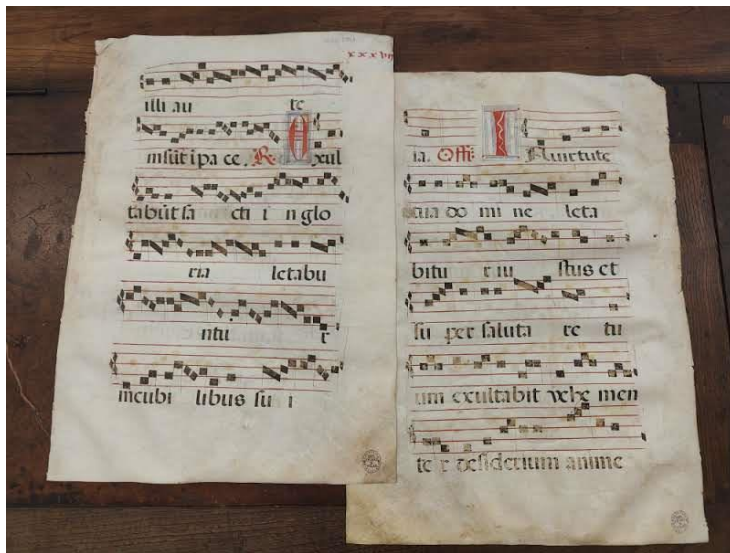 xxxvii
illi au te
m sūt i pa ce. R. Exul
tabūt sa cti i n glo
ria letabu
ntu r
incubi libus su i
ia. Offr̄. In uirtute
tua do mi ne leta
bitu r iu stus et
su per saluta re tu
um exultabit vehe men
te r desiderium anime